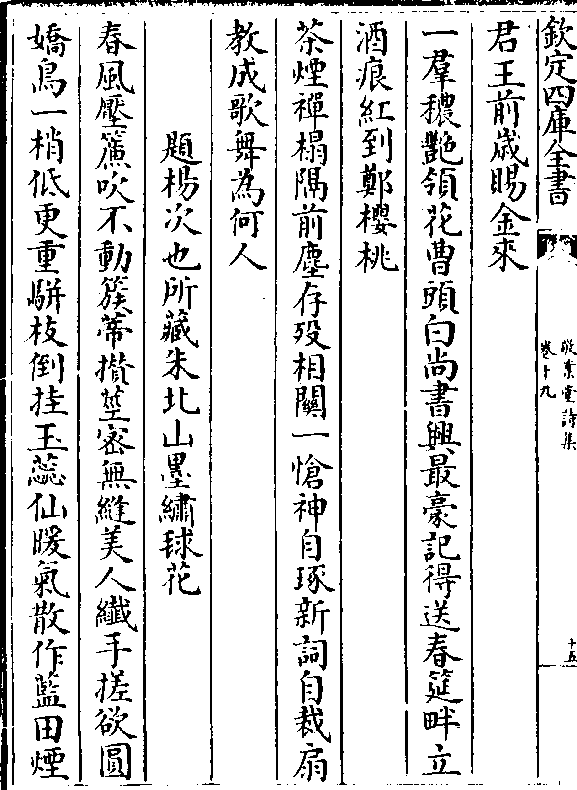 欽定四庫全書
敬業堂詩集
卷十九
十五
君王前歲賜金來
一羣穠艷領花曹頭白尚書興最豪記得送春筵畔立
酒痕紅到鄭櫻桃
茶煙禪榻隅前塵存歿相關一愴神自琢新詞自裁扇
教成歌舞為何人
題楊次也所藏朱北山墨繡毬花
春風壓簾吹不動簇蒂攢莖密無縫美人纖手搓欲圓
嬌鳥一梢低更重駢枝倒挂玉蕊仙暖氣散作藍田煙